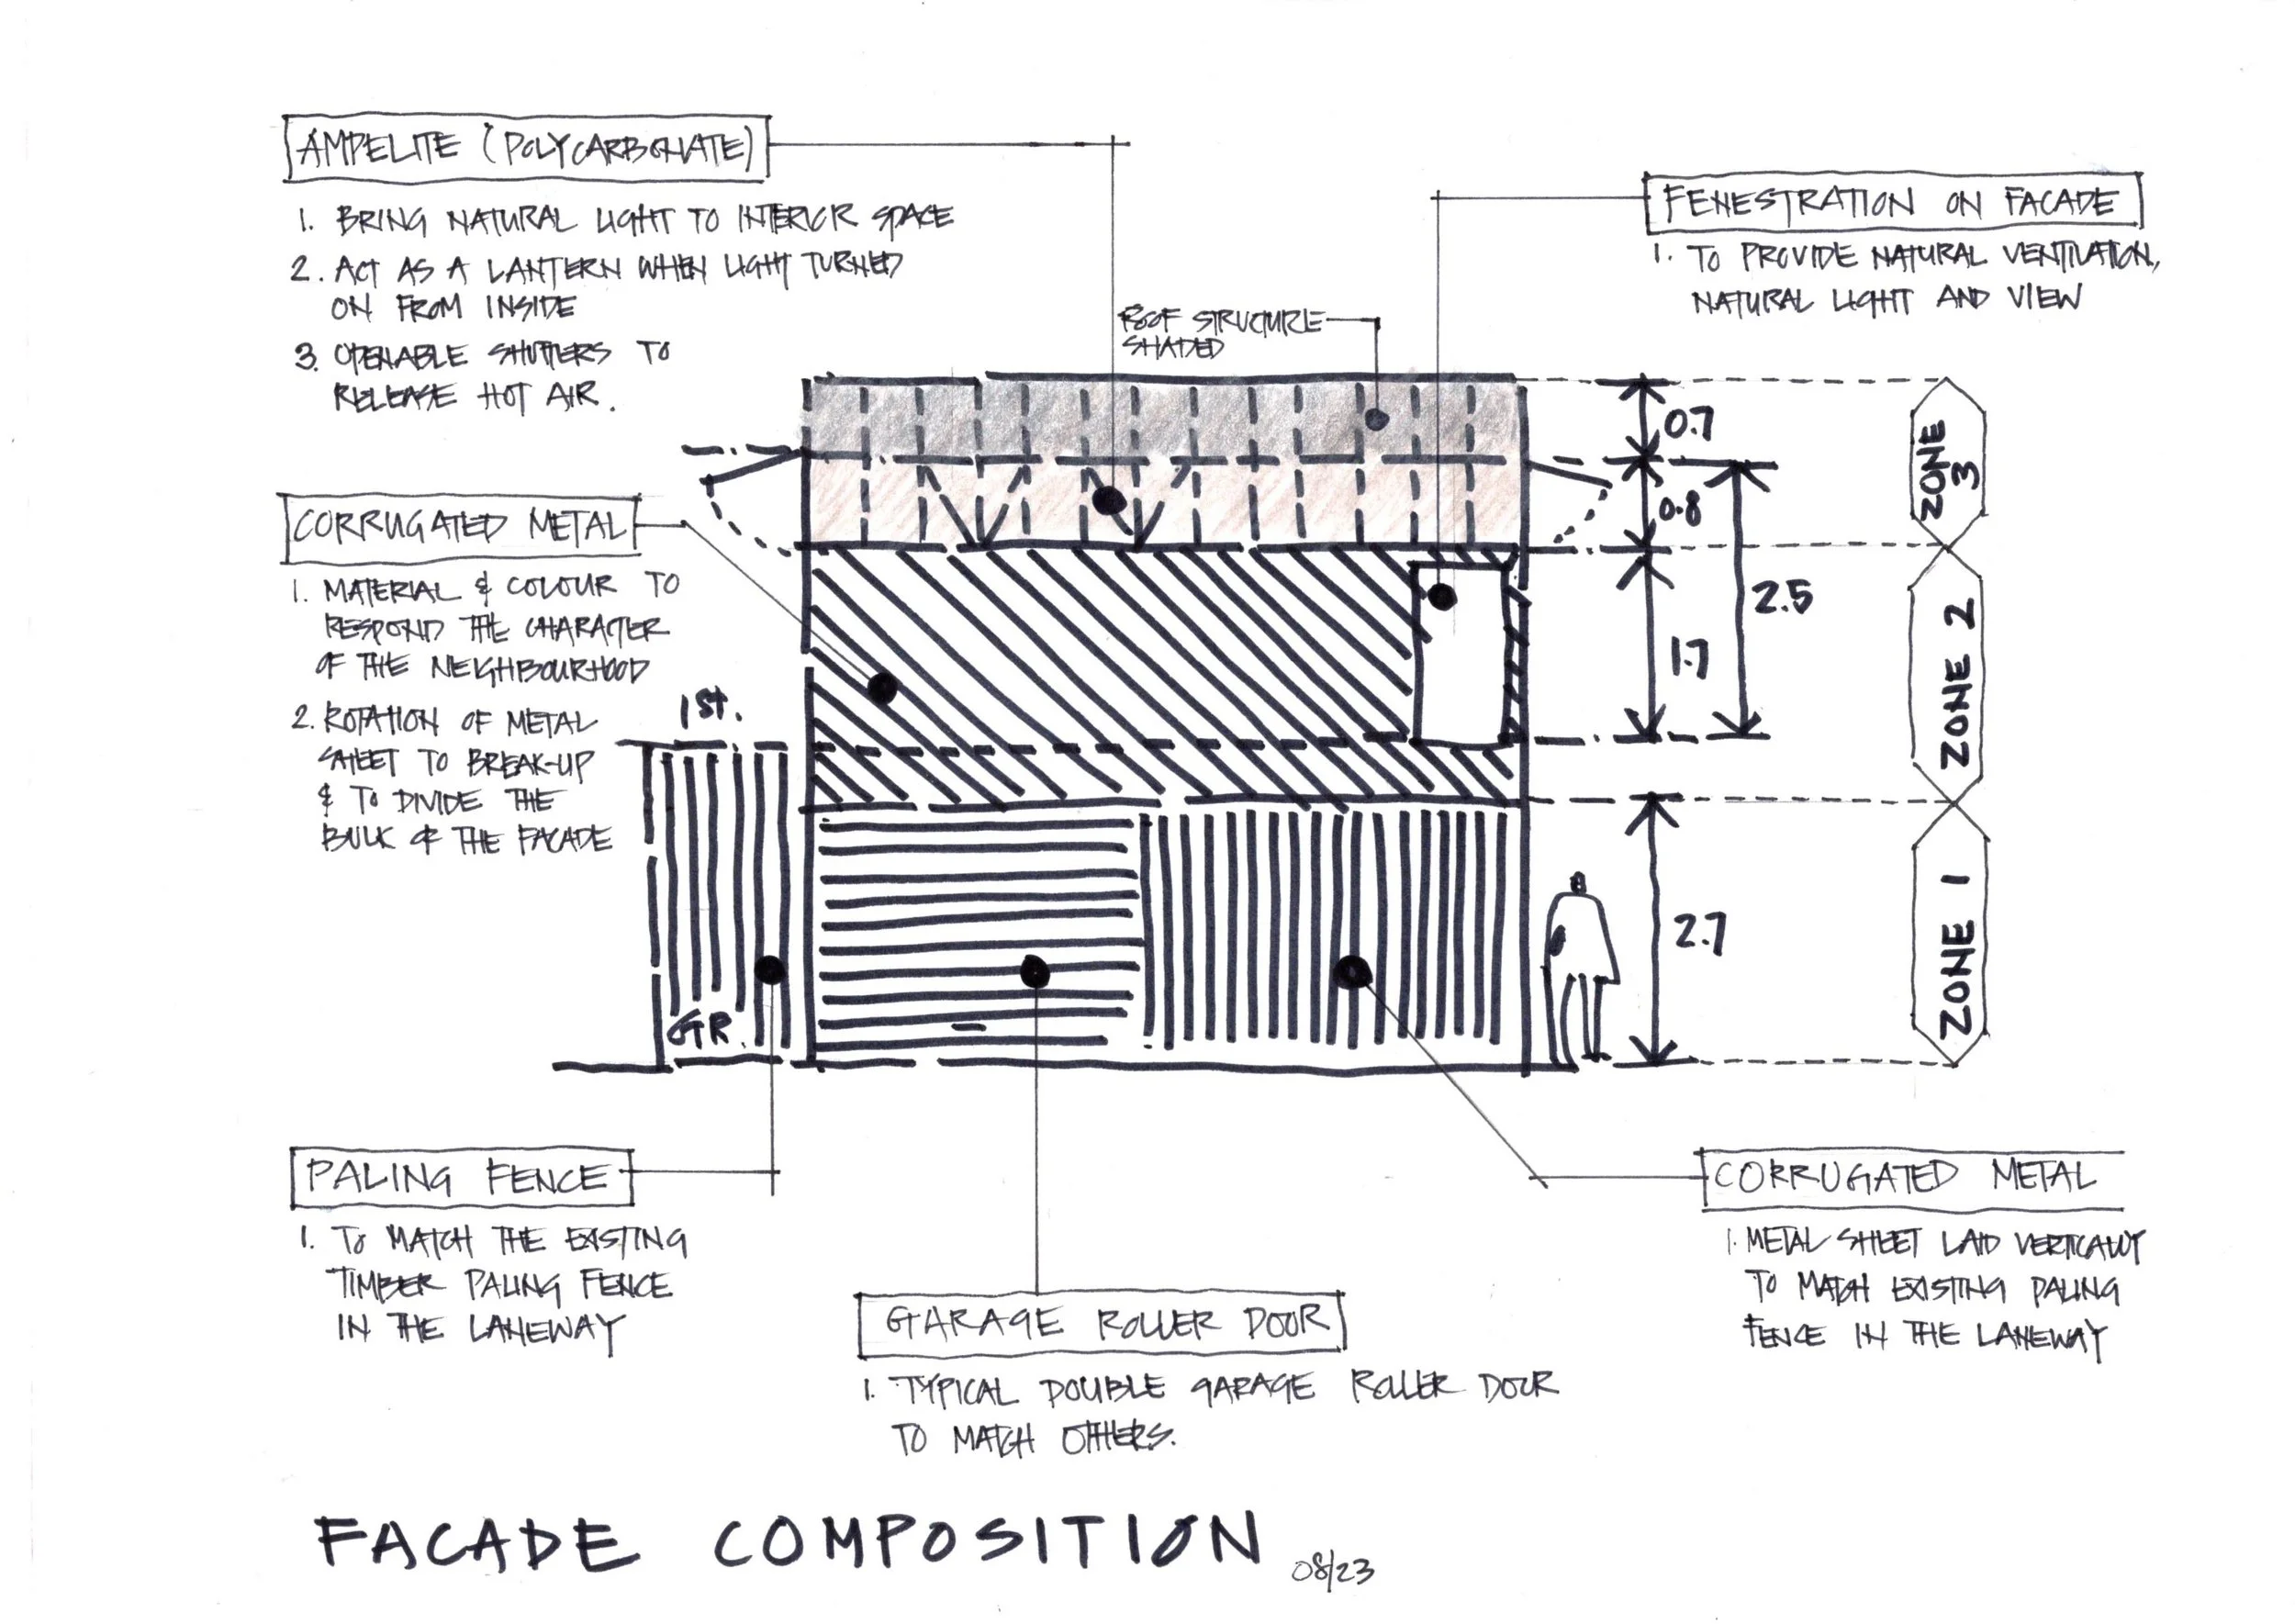 AMPELITE (POLYCARBONATE)
1. BRING NATURAL LIGHT TO INTERIOR SPACE
2. ACT AS A LANTERN WHEN LIGHT TURNED
ON FROM INSIDE
3. OPENABLE SHUTTERS TO
RELEASE HOT AIR.
FENESTRATION ON FACADE
1. TO PROVIDE NATURAL VENTILATION,
NATURAL LIGHT AND VIEW
ROOF STRUCTURE
SHADED
CORRUGATED METAL
1. MATERIAL & COLOUR TO
RESPOND THE CHARACTER
OF THE NEIGHBOURHOOD
2. ROTATION OF METAL
SHEET TO BREAK-UP
& TO DIVIDE THE
BULK OF THE FACADE
1ST.
GR.
0.7
0.8
2.5
1.7
2.7
ZONE 3
ZONE 2
ZONE 1
PALING FENCE
1. TO MATCH THE EXISTING
TIMBER PALING FENCE
IN THE LANEWAY
GARAGE ROLLER DOOR
1. TYPICAL DOUBLE GARAGE ROLLER DOOR
TO MATCH OTHERS.
CORRUGATED METAL
1. METAL SHEET LAID VERTICALLY
TO MATCH EXISTING PALING
FENCE IN THE LANEWAY
FACADE COMPOSITION
08/23